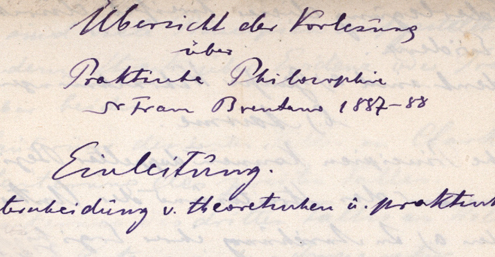 Übersicht der Vorlesung
über
Praktische Philosophie
Dr Franz Brentano 1887-88
Einleitung.
terscheidung v. theoretischen u. praktisch